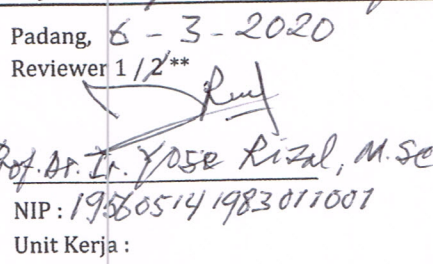 Padang, 6 - 3 - 2020
Reviewer 1 / 2 **
Prof. Dr. Ir. Yose Rizal, M.Sc
NIP : 195605141983011001
Unit Kerja :